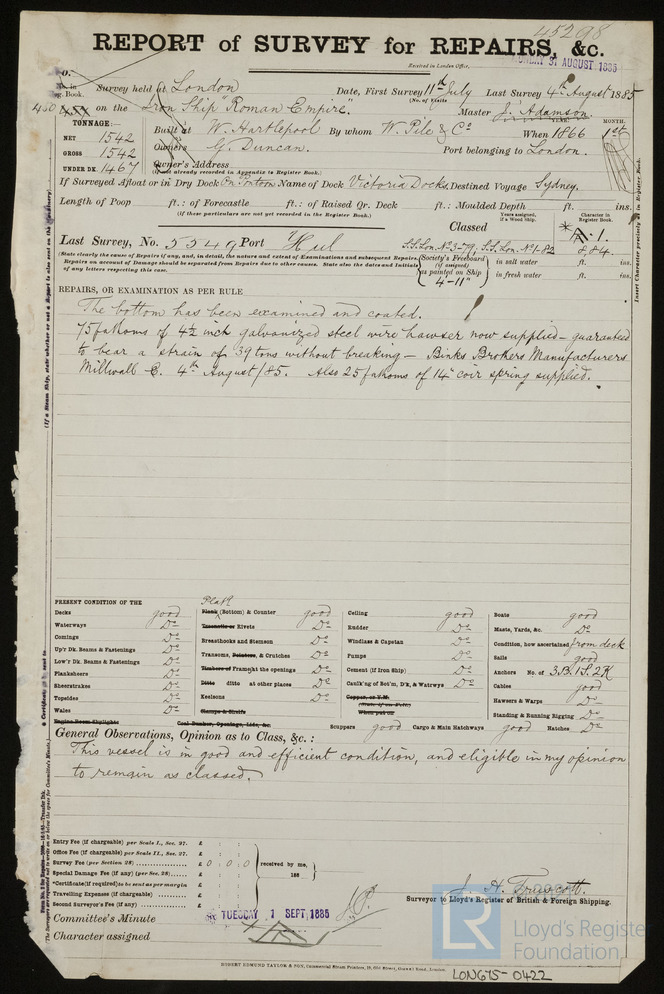 45298
REPORT of SURVEY for REPAIRS, &c.
Received in London Office,
31 AUGUST 1885
No. in Reg. Book. Survey held at London Date, First Survey 11th July Last Survey 4th August 1885
(No. of Visits
450 on the Iron Ship "Roman Empire". Master J. Adamson
TONNAGE:
NET 1542
GROSS 1542
UNDER DK. 1467
Built at W. Hartlepool By whom W. Pile & Co When 1866 MONTH. 1st
Owners G. Duncan. Port belonging to London.
Owner's Address
(If not already recorded in Appendix to Register Book.)
If Surveyed Afloat or in Dry Dock On Pontoon Name of Dock Victoria Docks Destined Voyage Sydney.
Length of Poop ft.: of Forecastle ft.: of Raised Qr. Deck ft.: Moulded Depth ft. ins.
(If these particulars are not yet recorded in the Register Book.)
Classed
Years assigned, if a Wood Ship.
Character in Register Book.
A. 1.
8,84
Last Survey, No. 5549 Port Hul S.S.Lon. No 3-79; S.S.Lon. No 1-82
(State clearly the cause of Repairs if any, and, in detail, the nature and extent of Examinations and subsequent Repairs. Repairs on account of Damage should be separated from Repairs due to other causes. State also the dates and initials of any letters respecting this case.
Society's Freeboard (if assigned) as painted on Ship 4-11"
in salt water ft. ins.
in fresh water ft. ins.
REPAIRS, OR EXAMINATION AS PER RULE
The bottom has been examined and coated.
75 fathoms of 4½ inch galvanized steel wire hawser now supplied - guaranteed
to bear a strain of 39 tons without breaking - Binks Brokers Manufacturers
Millwall E. 4th August/85. Also 25 fathoms of 14" coir spring supplied.
PRESENT CONDITION OF THE
Decks good
Waterways Do
Comings Do
Up'r Dk. Beams & Fastenings Do
Low'r Dk. Beams & Fastenings Do
Planksheers Do
Sheerstrakes Do
Topsides Do
Wales Do
Engine Room Skylights
Plate
Plank (Bottom) & Counter good
Treenails or Rivets Do
Breasthooks and Stemson Do
Transoms, Pointers, & Crutches Do
Timbers or Frames at the openings Do
Ditto ditto at other places Do
Keelsons Do
Stamps & Shafts
Coal Bunker, Openings, Lids, &c.
Ceiling good
Rudder Do
Windlass & Capstan Do
Pumps Do
Cement (if Iron Ship) Do
Caulk'ng of Bot'm, D'k, & Watrwys Do
Copper, or Y.M.
When put on
Scuppers good Cargo & Main Hatchways good Hatches Do
Boats good
Masts, Yards, &c. Do
Condition, how ascertained from deck
Sails good
Anchors No. of 3.B. 1S. 2K
Cables good
Hawsers & Warps Do
Standing & Running Rigging Do
General Observations, Opinion as to Class, &c.:
This vessel is in good and efficient condition, and eligible in my opinion
to remain as classed.
Entry Fee (if chargeable) per Scale I., Sec. 27. £
Office Fee (if chargeable) per Scale II., Sec. 27. £
Survey Fee (per Section 28) £ 0 : 0 : 0 received by me,
Special Damage Fee (if any) (per Sec. 28) £ 188
*Certificate (if required) to be sent as per margin
Travelling Expenses (if chargeable) £
Second Surveyor's Fee (if any) £
J. H. Truscott.
Surveyor to Lloyd's Register of British & Foreign Shipping.
Committee's Minute TUESDAY 1 SEPT 1885
Character assigned
ROBERT EDMUND TAYLOR & SON, Commercial Steam Printers, 19, Old Street, Goswell Road, London.
LR Lloyd's Register Foundation
LON675-0422